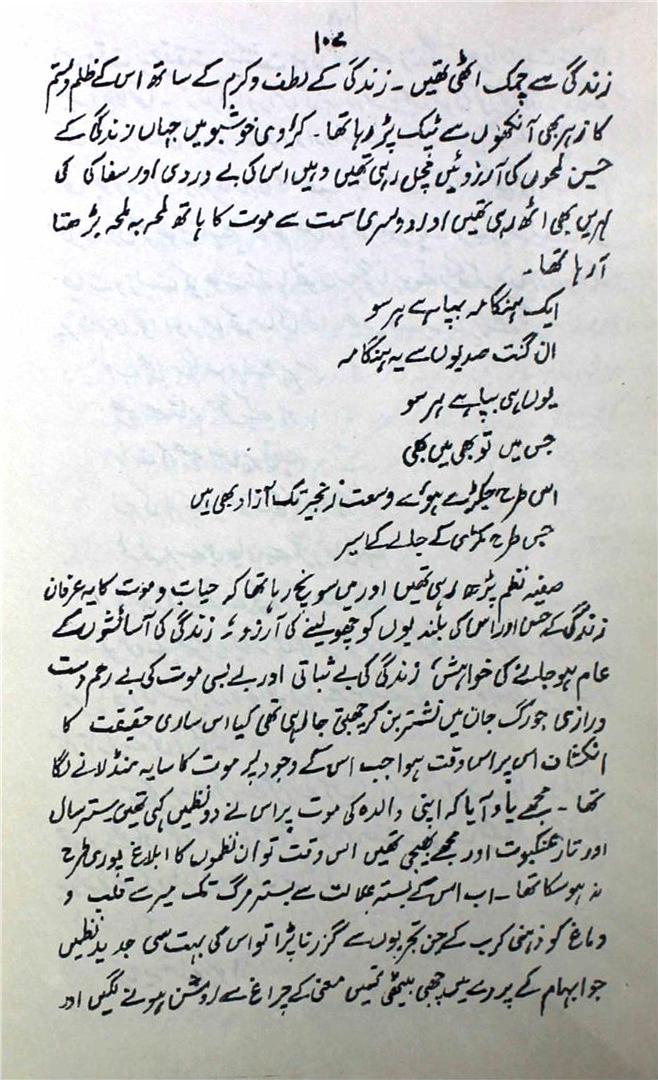 ۱۰۷
زندگی سے چمک اٹھی تھیں ۔ زندگی کے لطف و کرم کے ساتھ اس کے ظلم و ستم
کا زہر بھی آنکھوں سے ٹپک پڑ رہا تھا ۔ کڑوی خوشبو میں جہاں زندگی کے
حسین لمحوں کی آرزوئیں مچل رہی تھیں وہیں اس کی بے دردی اور سفاکی کی
لہریں بھی اٹھ رہی تھیں اور دوسری سمت سے موت کا ہاتھ لمحہ بہ لمحہ بڑھتا
آ رہا تھا ۔
ایک ہنگامہ بپا ہے ہر سو
ان گنت صدیوں سے یہ ہنگامہ
یوں ہی بپا ہے ہر سو
جس میں تو بھی میں بھی
اس طرح جکڑے ہوئے وسعت زنجیر تک آزاد بھی ہیں
جس طرح مکڑی کے جالے کے اسیر
صفیہ نظم پڑھ رہی تھیں اور میں سوچ رہا تھا کہ حیات و موت کا یہ عرفان
زندگی کے حسن اور اس کی بلندیوں کو چھو لینے کی آرزو ، زندگی کی آسائشوں کے
عام ہو جانے کی خواہش، زندگی کی بے ثباتی اور بے بسی موت کی بے رحم دست
درازی جو رگ جاں میں نشتر بن کر چبھتی جا رہی تھی کیا اس ساری حقیقت کا
انکشاف اس پر اس وقت ہوا جب اس کے وجود پر موت کا سایہ منڈلانے لگا
تھا ۔ مجھے یاد آیا کہ اپنی والدہ کی موت پر اس نے دو نظمیں کہی تھیں ستر سال
اور تار عنکبوت اور مجھے بھیجی تھیں اس وقت تو ان نظموں کا ابلاغ پوری طرح
نہ ہو سکا تھا ۔ اب اس کے بستر علالت سے بستر مرگ تک میرے قلب و
دماغ کو ذہنی کرب کے جن تجربوں سے گزرنا پڑا تو اس کی بہت سی جدید نظمیں
جو ابہام کے پردے میں چھپی بیٹھی تھیں معنی کے چراغ سے روشن ہونے لگیں اور